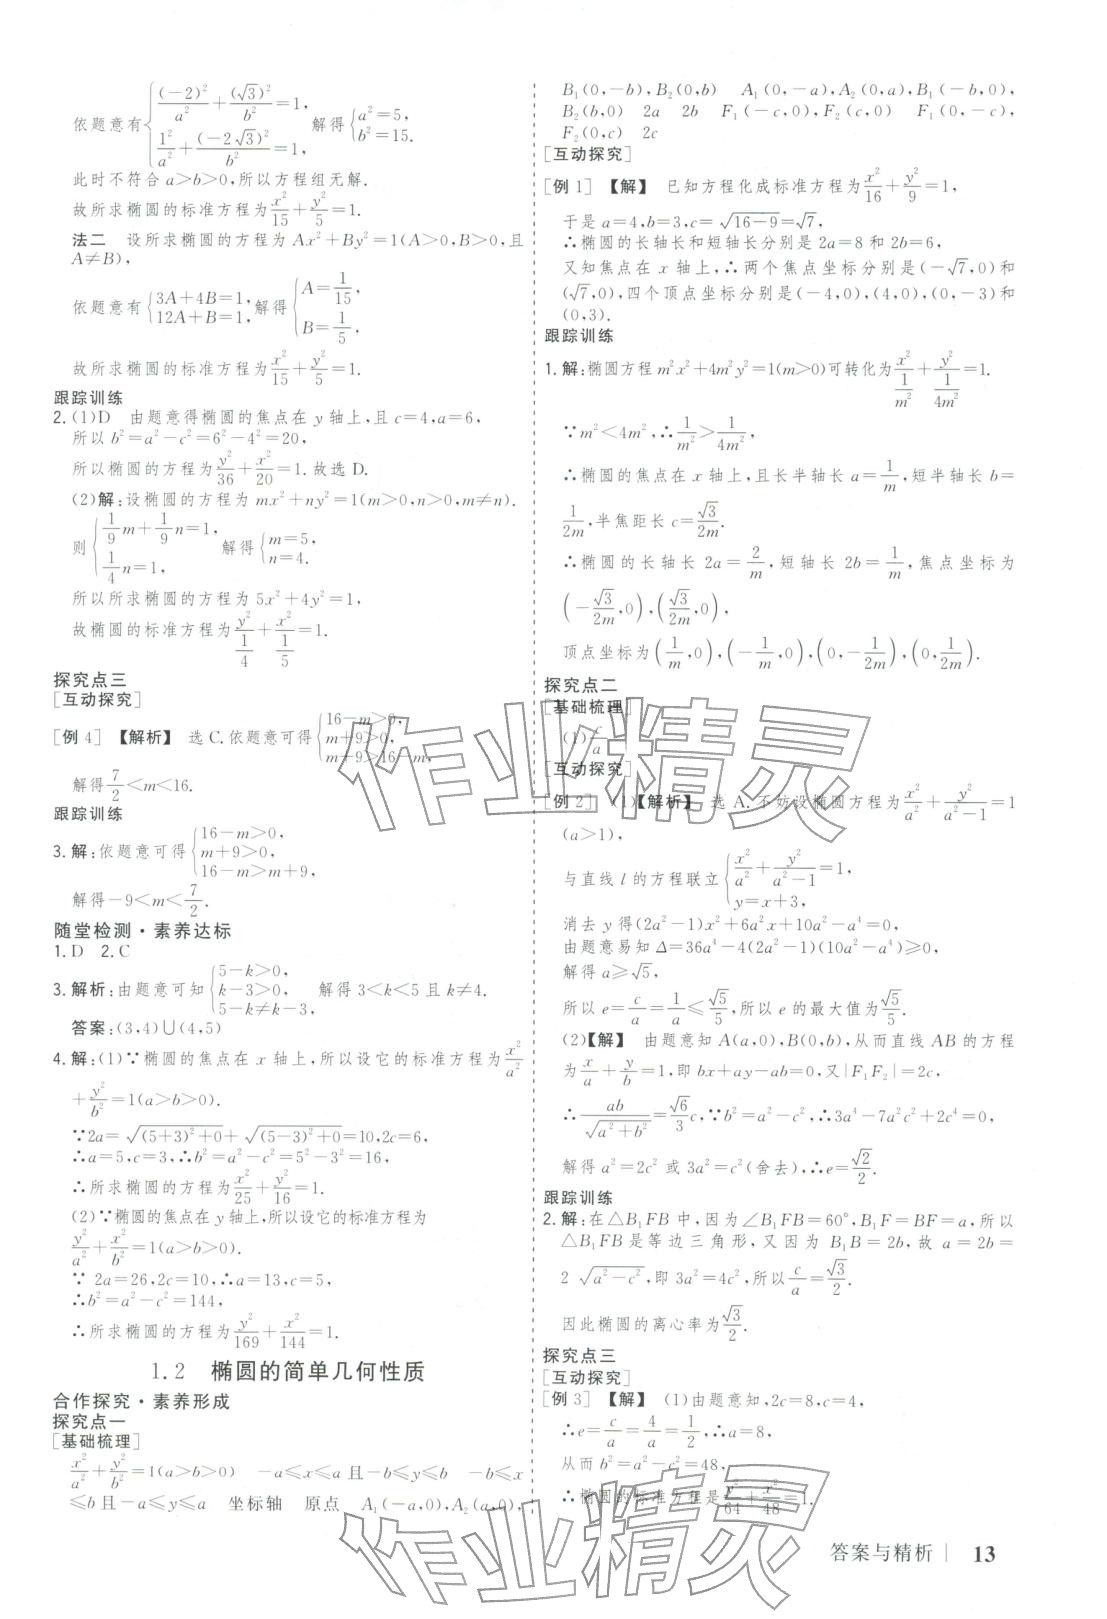 依题意有{(-2)²/a²+(√3)²/b²=1, 1²/a²+(-2√3)²/b²=1, 解得{a²=5, b²=15.
此时不符合a>b>0,所以方程组无解.
故所求椭圆的标准方程为x²/15+y²/5=1.
法二 设所求椭圆的方程为Ax²+By²=1(A>0,B>0,且
A≠B),
依题意有{3A+4B=1, 12A+B=1, 解得{A=1/15, B=1/5.
故所求椭圆的标准方程为x²/15+y²/5=1.
跟踪训练
2.(1)D 由题意得椭圆的焦点在y轴上,且c=4,a=6,
所以b²=a²-c²=6²-4²=20,
所以椭圆的方程为y²/36+x²/20=1.故选D.
(2)解:设椭圆的方程为mx²+ny²=1(m>0,n>0,m≠n).
则{1/9m+1/9n=1, 1/4n=1, 解得{m=5, n=4.
所以所求椭圆的方程为5x²+4y²=1,
故椭圆的标准方程为y²/(1/4)+x²/(1/5)=1.
探究点三
[互动探究]
[例4] 【解析】 选C.依题意可得{16-m>0, m+9>0, m+9>16-m,
解得7/2<m<16.
跟踪训练
3.解:依题意可得{16-m>0, m+9>0, 16-m>m+9,
解得-9<m<7/2.
随堂检测·素养达标
1.D 2.C
3.解析:由题意可知{5-k>0, k-3>0, 5-k≠k-3, 解得3<k<5且k≠4.
答案:(3,4)∪(4,5)
4.解:(1)∵椭圆的焦点在x轴上,所以设它的标准方程为x²/a²
+y²/b²=1(a>b>0).
∵2a=√((5+3)²+0)+√((5-3)²+0)=10,2c=6,
∴a=5,c=3,∴b²=a²-c²=5²-3²=16,
∴所求椭圆的方程为x²/25+y²/16=1.
(2)∵椭圆的焦点在y轴上,所以设它的标准方程为
y²/a²+x²/b²=1(a>b>0).
∵2a=26,2c=10,∴a=13,c=5,
∴b²=a²-c²=144,
∴所求椭圆的方程为y²/169+x²/144=1.
1.2 椭圆的简单几何性质
合作探究·素养形成
探究点一
[基础梳理]
x²/a²+y²/b²=1(a>b>0) -a≤x≤a且-b≤y≤b -b≤x
≤b且-a≤y≤a 坐标轴 原点 A₁(-a,0),A₂(a,0),
B₁(0,-b),B₂(0,b) A₁(0,-a),A₂(0,a),B₁(-b,0),
B₂(b,0) 2a 2b F₁(-c,0),F₂(c,0) F₁(0,-c),
F₂(0,c) 2c
[互动探究]
[例1] 【解】 已知方程化成标准方程为x²/16+y²/9=1,
于是a=4,b=3,c=√(16-9)=√7,
∴椭圆的长轴长和短轴长分别是2a=8和2b=6,
又知焦点在x轴上,∴两个焦点坐标分别是(-√7,0)和
(√7,0),四个顶点坐标分别是(-4,0),(4,0),(0,-3)和
(0,3).
跟踪训练
1.解:椭圆方程m²x²+4m²y²=1(m>0)可转化为x²/(1/m²)+y²/(1/4m²)=1.
∵m²<4m²,∴1/m²>1/4m²,
∴椭圆的焦点在x轴上,且长半轴长a=1/m,短半轴长b=
1/2m,半焦距长c=√3/2m.
∴椭圆的长轴长2a=2/m,短轴长2b=1/m,焦点坐标为
(-√3/2m,0),(√3/2m,0),
顶点坐标为(1/m,0),(-1/m,0),(0,-1/2m),(0,1/2m).
探究点二
[基础梳理]
(1)c/a
[互动探究]
[例2] (1)【解析】 选A.不妨设椭圆方程为x²/a²+y²/(a²-1)=1
(a>1),
与直线l的方程联立{x²/a²+y²/(a²-1)=1, y=x+3,
消去y得(2a²-1)x²+6a²x+10a²-a⁴=0,
由题意易知Δ=36a⁴-4(2a²-1)(10a²-a⁴)≥0,
解得a≥√5,
所以e=c/a=1/a≤√5/5,所以e的最大值为√5/5.
(2)【解】 由题意知A(a,0),B(0,b),从而直线AB的方程
为x/a+y/b=1,即bx+ay-ab=0,又|F₁F₂|=2c,
∴ab/√(a²+b²)=√6/3c,∵b²=a²-c²,∴3a⁴-7a²c²+2c⁴=0,
解得a²=2c²或3a²=c²(舍去),∴e=√2/2.
跟踪训练
2.解:在△B₁FB中,因为∠B₁FB=60°,B₁F=BF=a,所以
△B₁FB是等边三角形,又因为B₁B=2b,故a=2b=
2√(a²-c²),即3a²=4c²,所以c/a=√3/2.
因此椭圆的离心率为√3/2.
探究点三
[互动探究]
[例3] 【解】 (1)由题意知,2c=8,c=4,
∴e=c/a=4/a=1/2,∴a=8,
从而b²=a²-c²=48,
∴椭圆的标准方程是y²/64+x²/48=1.
作业精灵
作业精灵
答案与精析 | 13